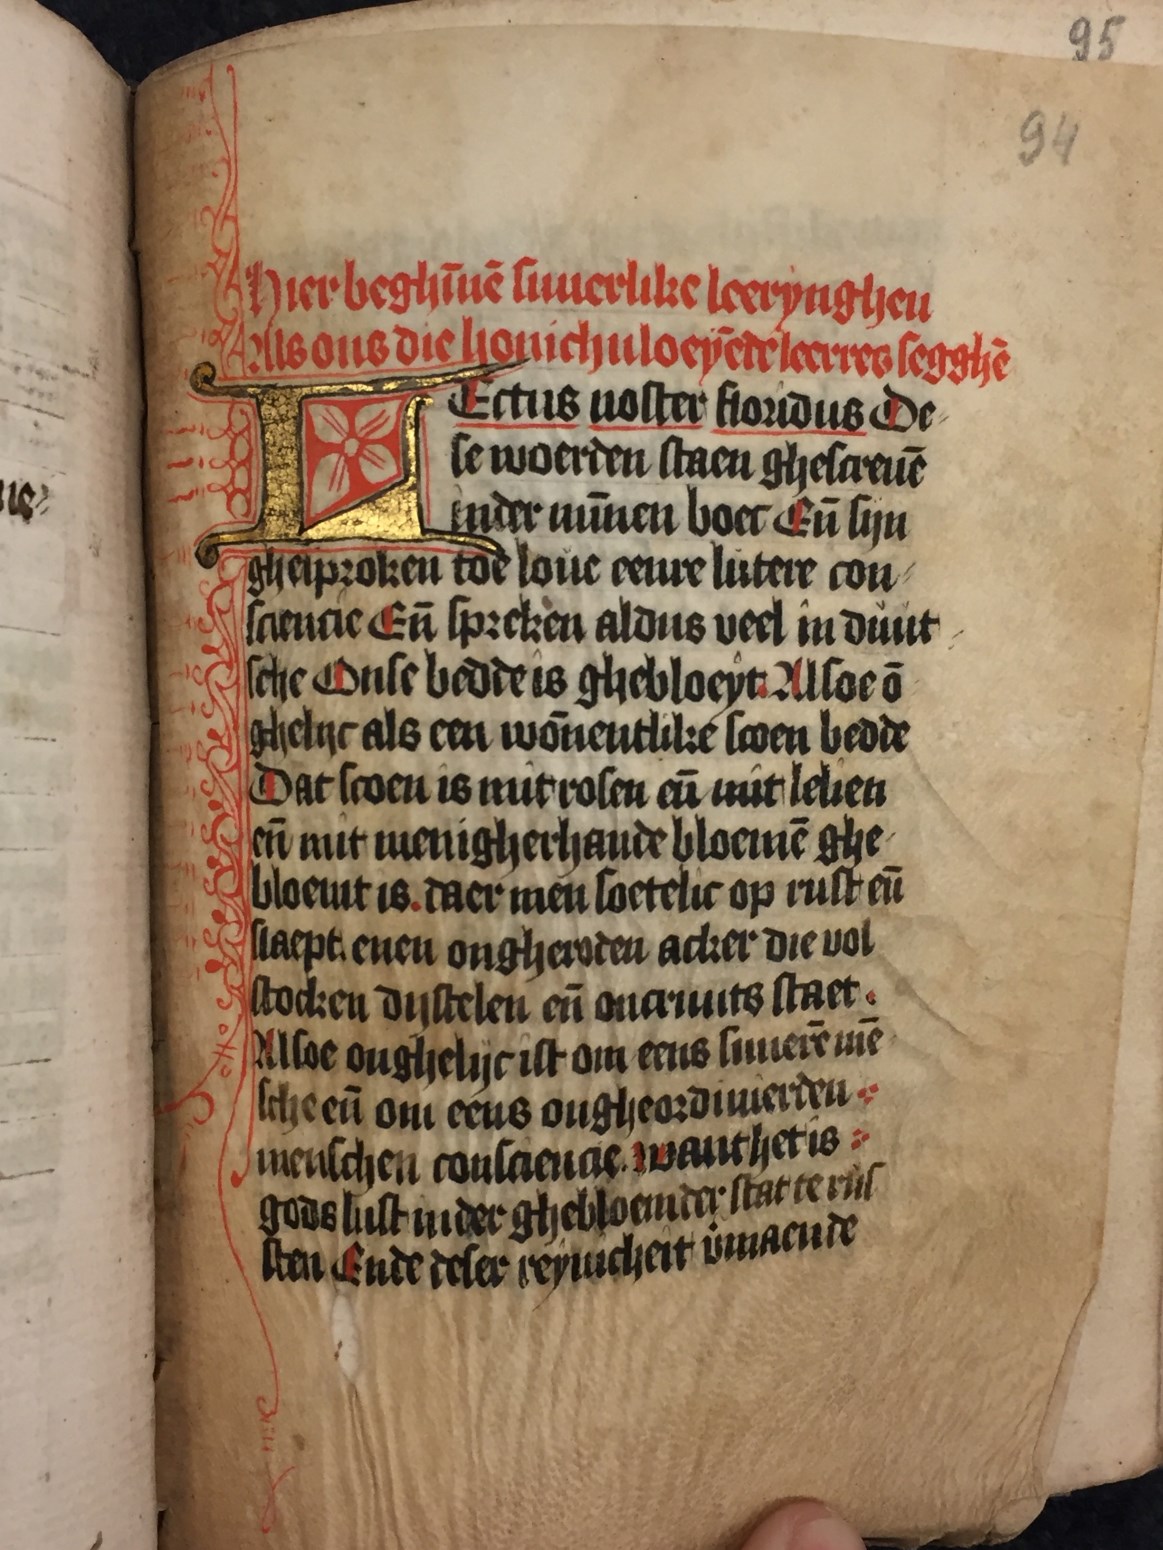 95
94
Hier beghīnē suuerlike leerynghen
Als ons die honichuloeyēde leerres segghē
LEctus noster floridus De-
se woerden staen ghescreuē
inder mīnen boec Eñ sijn
ghesproken toe loue eenre lutere con-
sciencie Eñ spreken aldus veel in duut-
sche Onse bedde is ghebloeyt. Alsoe ō
ghelijc als een wōnentlike scoen bedde
Dat scoen is mit rosen eñ mit lelien
eñ mit menigherhande bloemē ghe-
bloemt is. daer men soetelic op rust eñ
slaept. enen ongheroden acker die vol
stocken dystelen eñ oncruuts staet.
Alsoe onghelijc ist om eens suuerē mē
sche eñ om eens ongheordinierden
menschen consciencie. want het is
gods lust inder ghebloemder stat te rus
sten Ende deser reynicheit vmaende